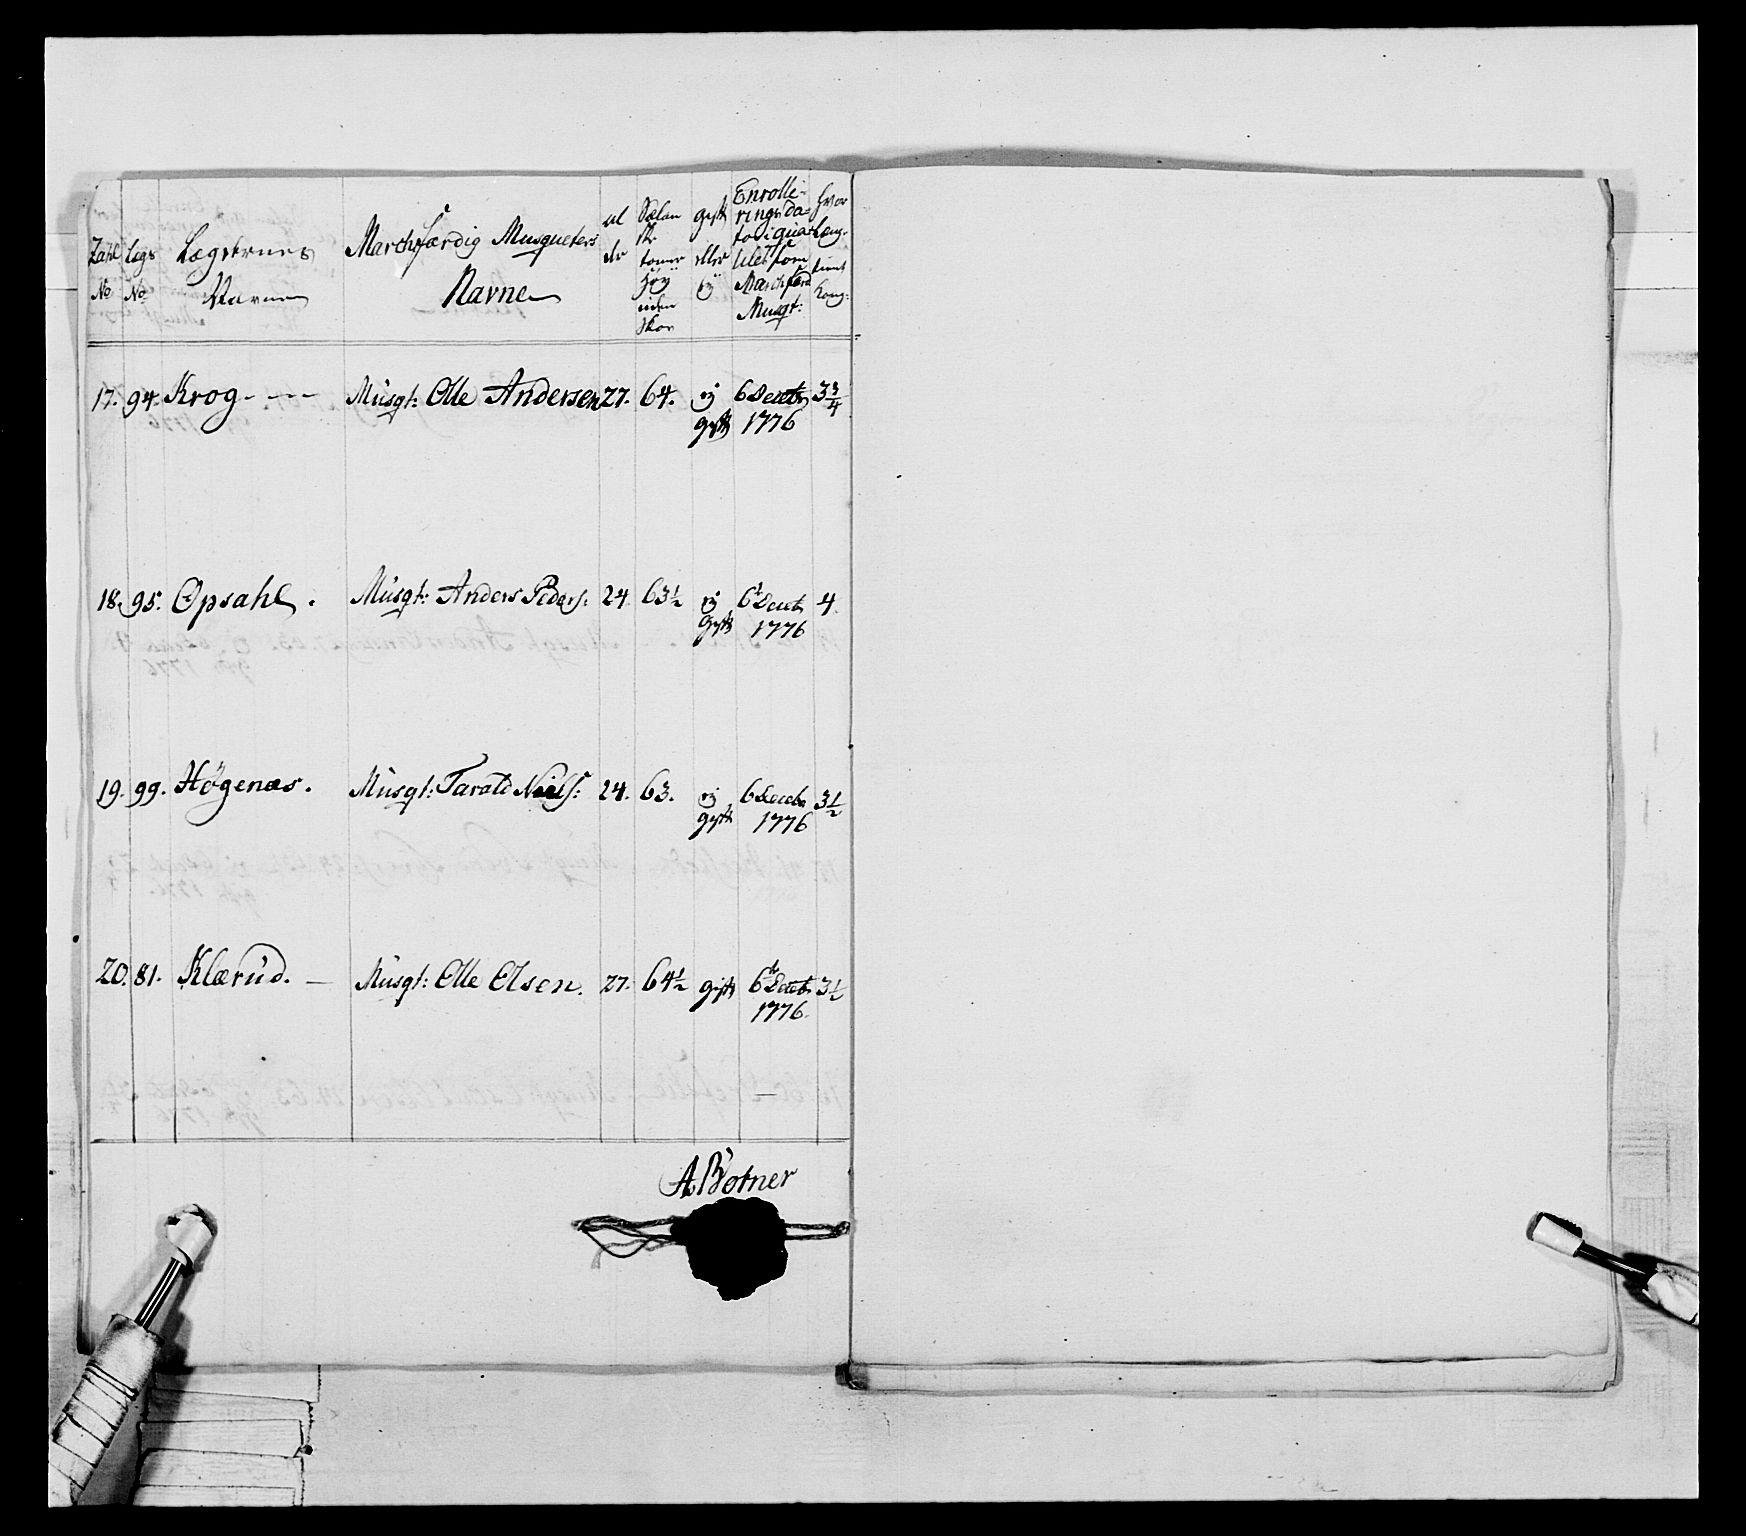 Zahl No
Lægs No
Lægdernes Navne
Marchfærdig Musqueters Navne
al der
uden Skoe
gift eller ej
Enrolle-
rings da-
to i qua-
litet som
Marchfærd
Musqt:
17. 94. Krog - - - Musqt: Olle Andersen 27. 64. ej gift 6 Decbr 1776 3 3/4
18. 95. Opsahl. Musqt: Anders Peders: 24. 63 1/2 ej gift 6t Decbr 1776 4.
19. 99. Høgenæs. Musqt: Tarald Niels: 24. 63. ej gift 6 Decbr 1776 3 1/2
20. 81. Klærud. — Musqt: Olle Olsen. 27. 64 1/2 gift 6t Decbr 1776. 3 1/2
A Botner